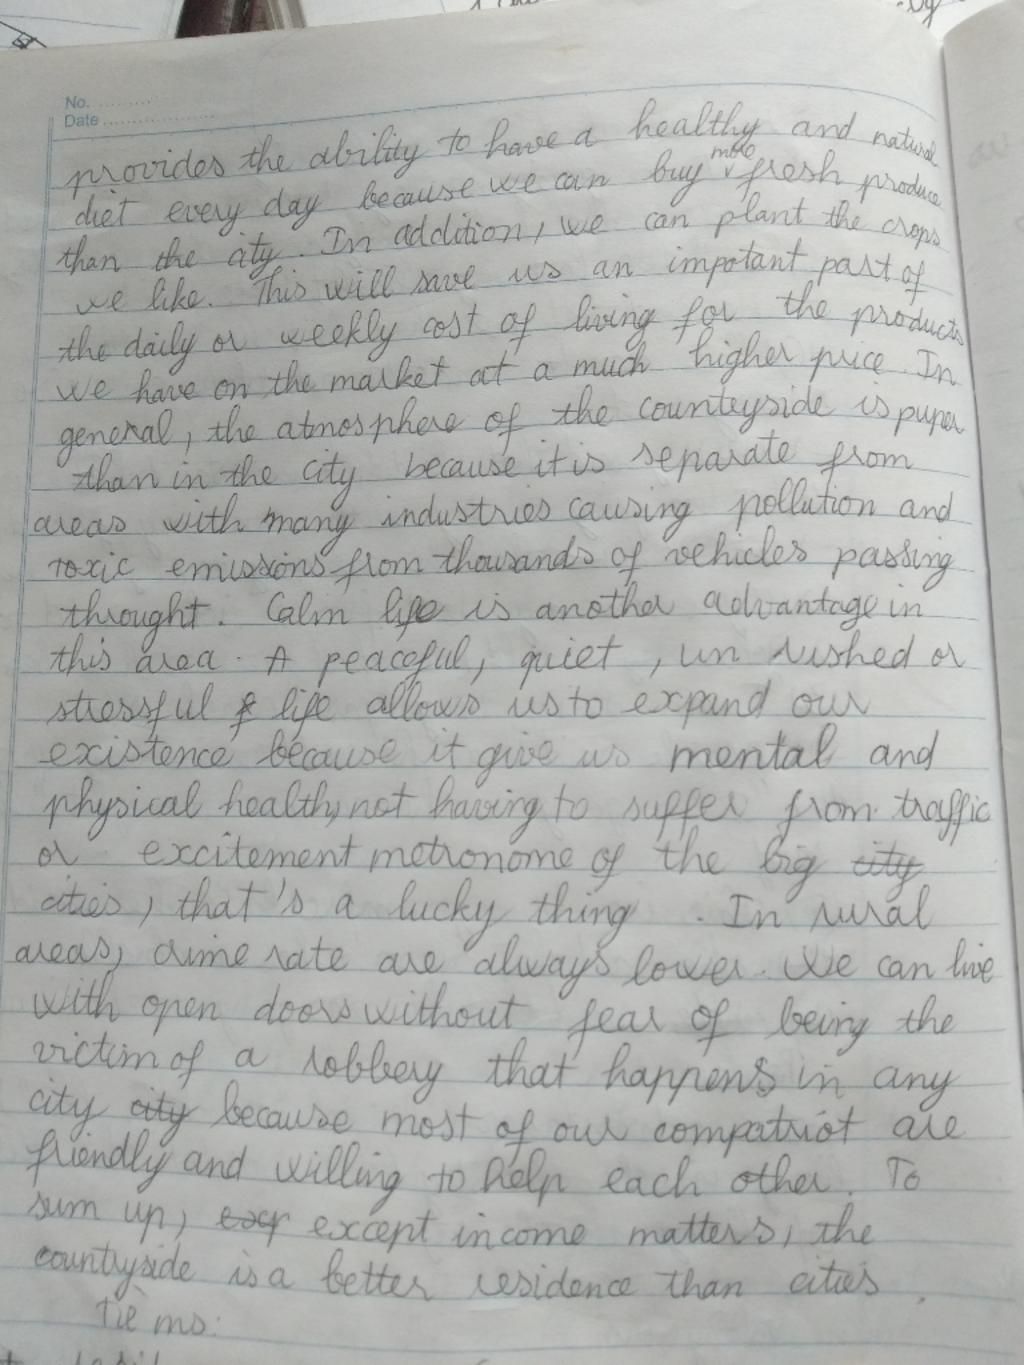 No. ..........
Date ....................
provides the ability to have a healthy and natural
diet every day because we can buy more fresh produce
than the city. In addition, we can plant the crops
we like. This will save us an impotant part of
the daily or weekly cost of living for the products
we have on the market at a much higher price. In
general, the atmosphere of the counteyside is puper
than in the city because it is separate from
areas with many industries causing pollution and
toxic emissions from thousands of vehicles passing
throught. Calm life is another advantage in
this area. A peaceful, quiet, un rushed or
stressful life allows us to expand our
existence because it give us mental and
physical health, not having to suffer from traffic
or excitement metronome of the big city
cities, that's a lucky thing. In rural
areas, crime rate are always lower. We can live
with open doors without fear of being the
victim of a robbery that happens in any
city city because most of our compatriot are
friendly and willing to help each other. To
sum up, except income matters, the
countryside is a better residence than cities.